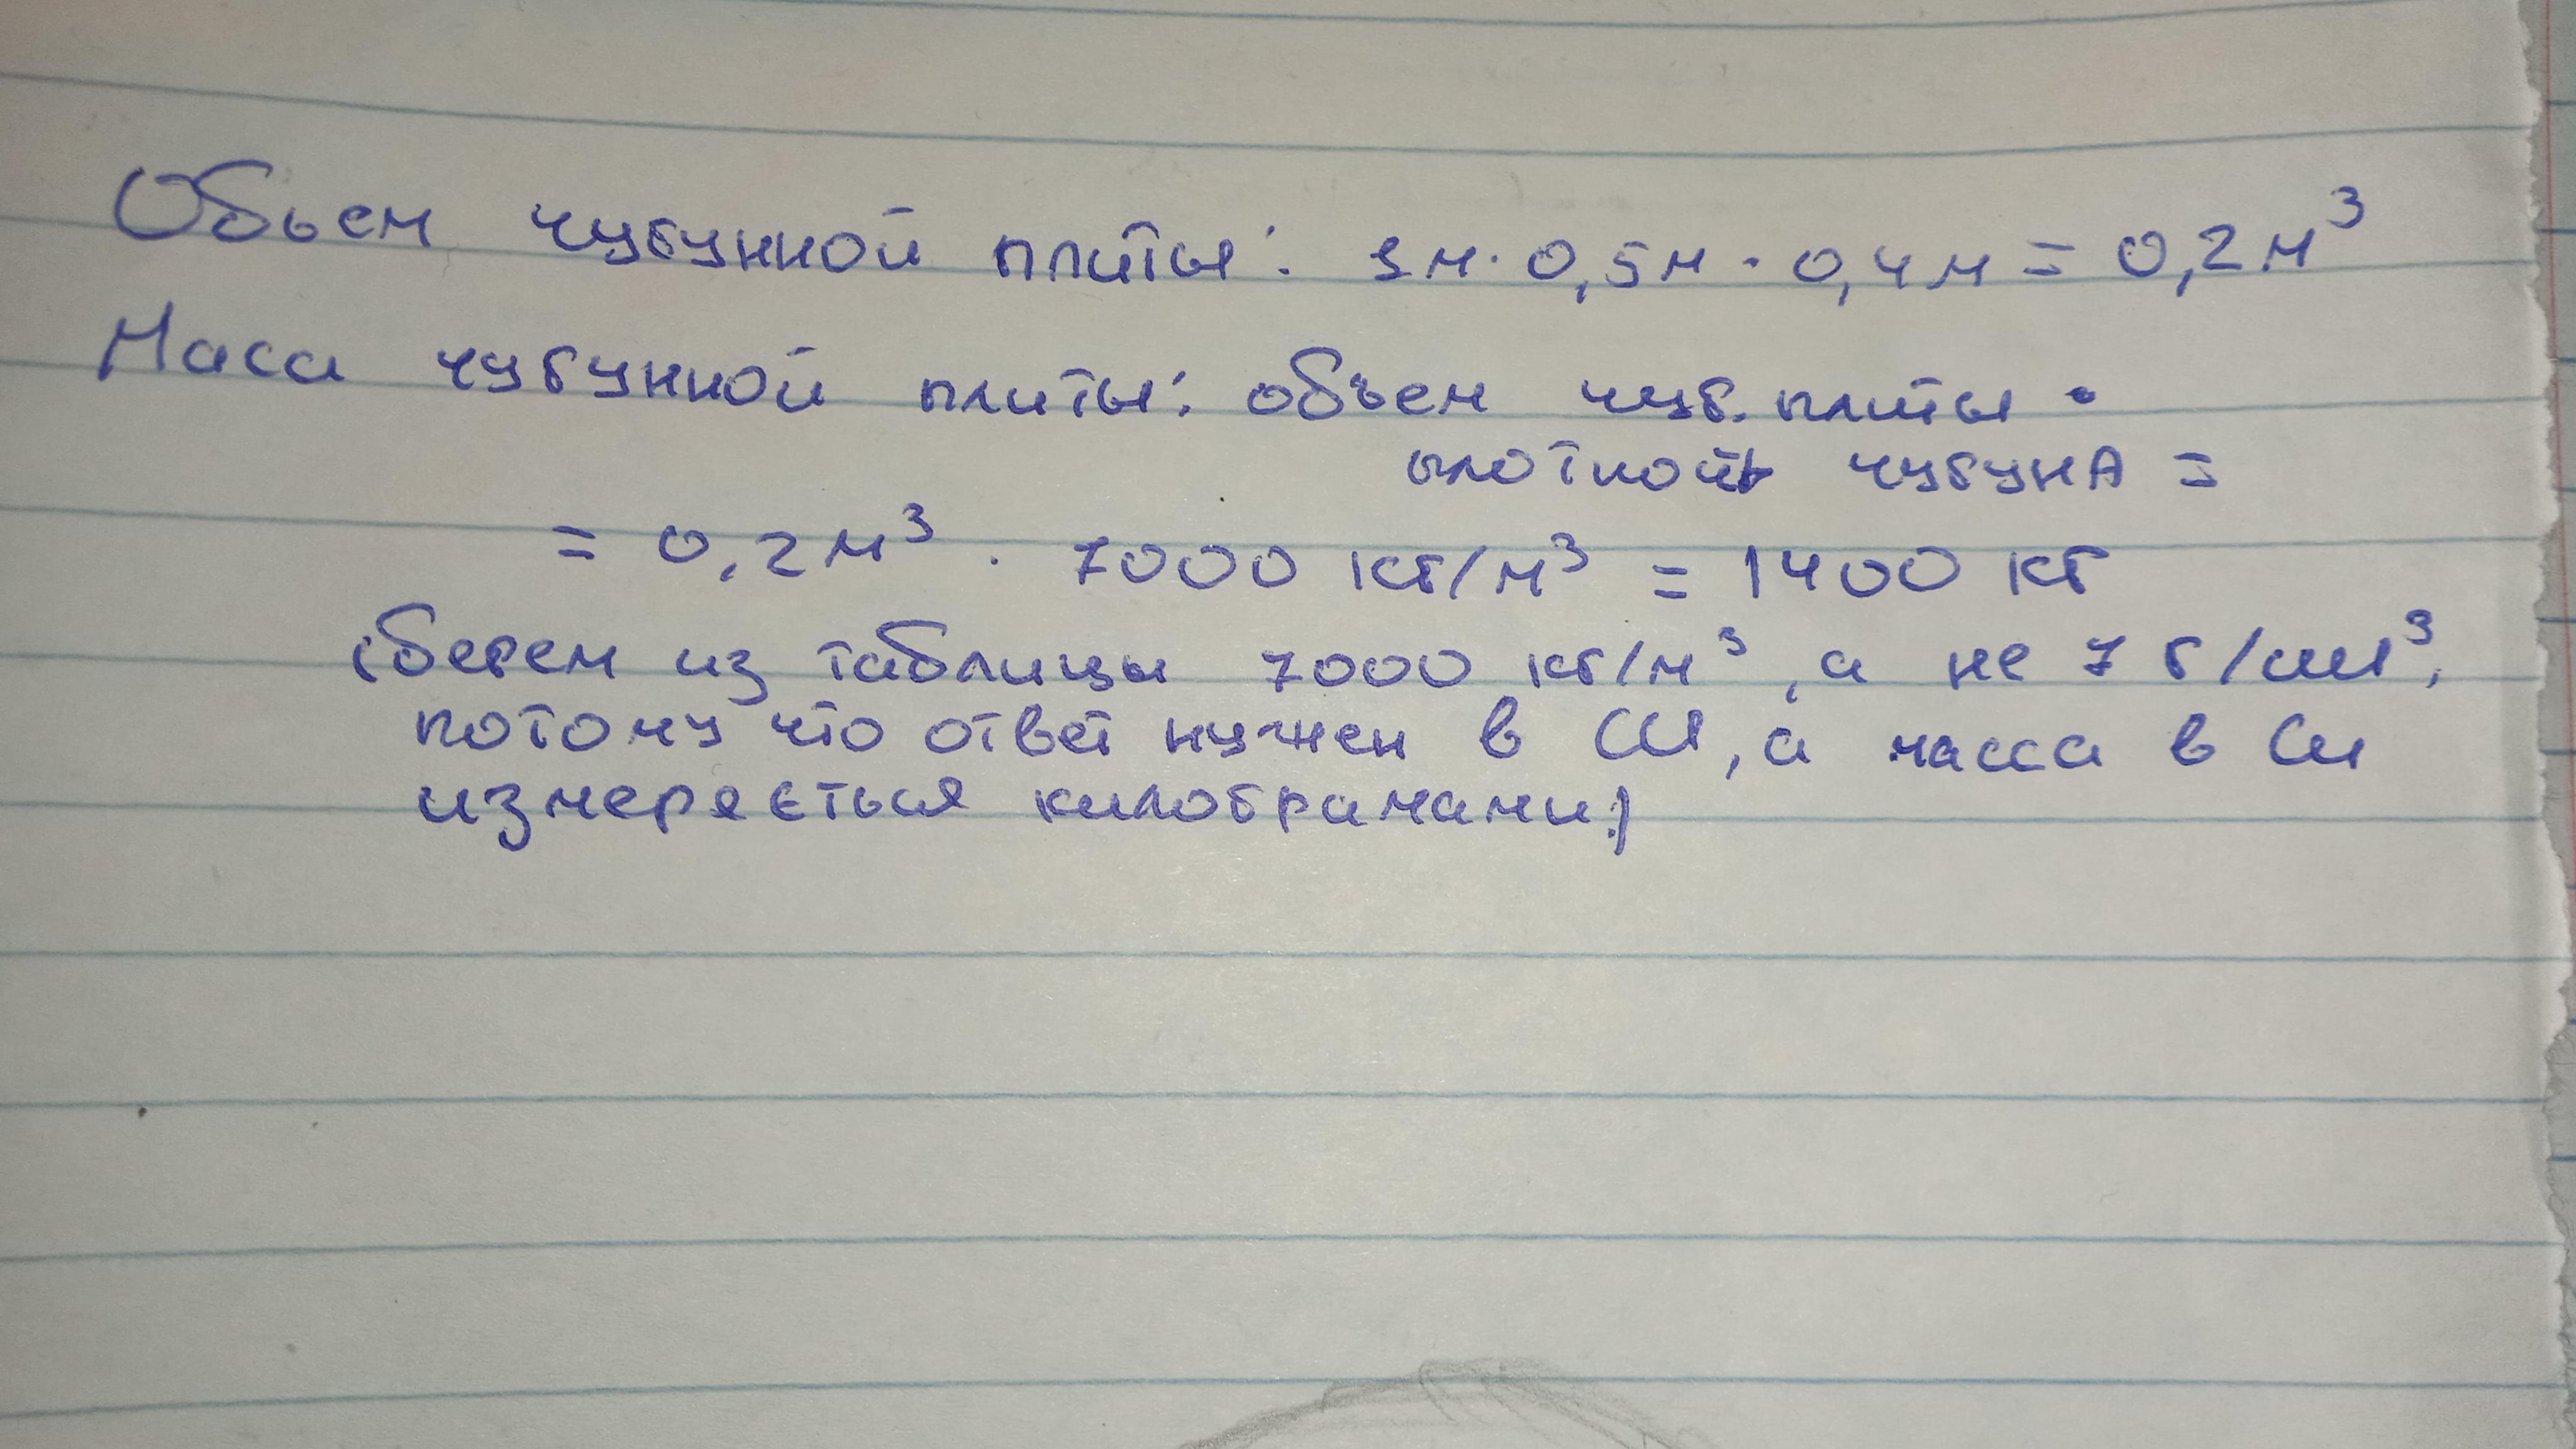 Обьем чугунной плиты: 1м · 0,5м · 0,4м = 0,2м³
Маса чугунной плиты: объем чуг. плиты ·
плотность чугунА =
= 0,2м³ · 7000 кг/м³ = 1400 кг
(берем из таблицы 7000 кг/м³, а не 7 г/см³,
потому что ответ нужен в СИ, а масса в Си
измеряється килограмами.)